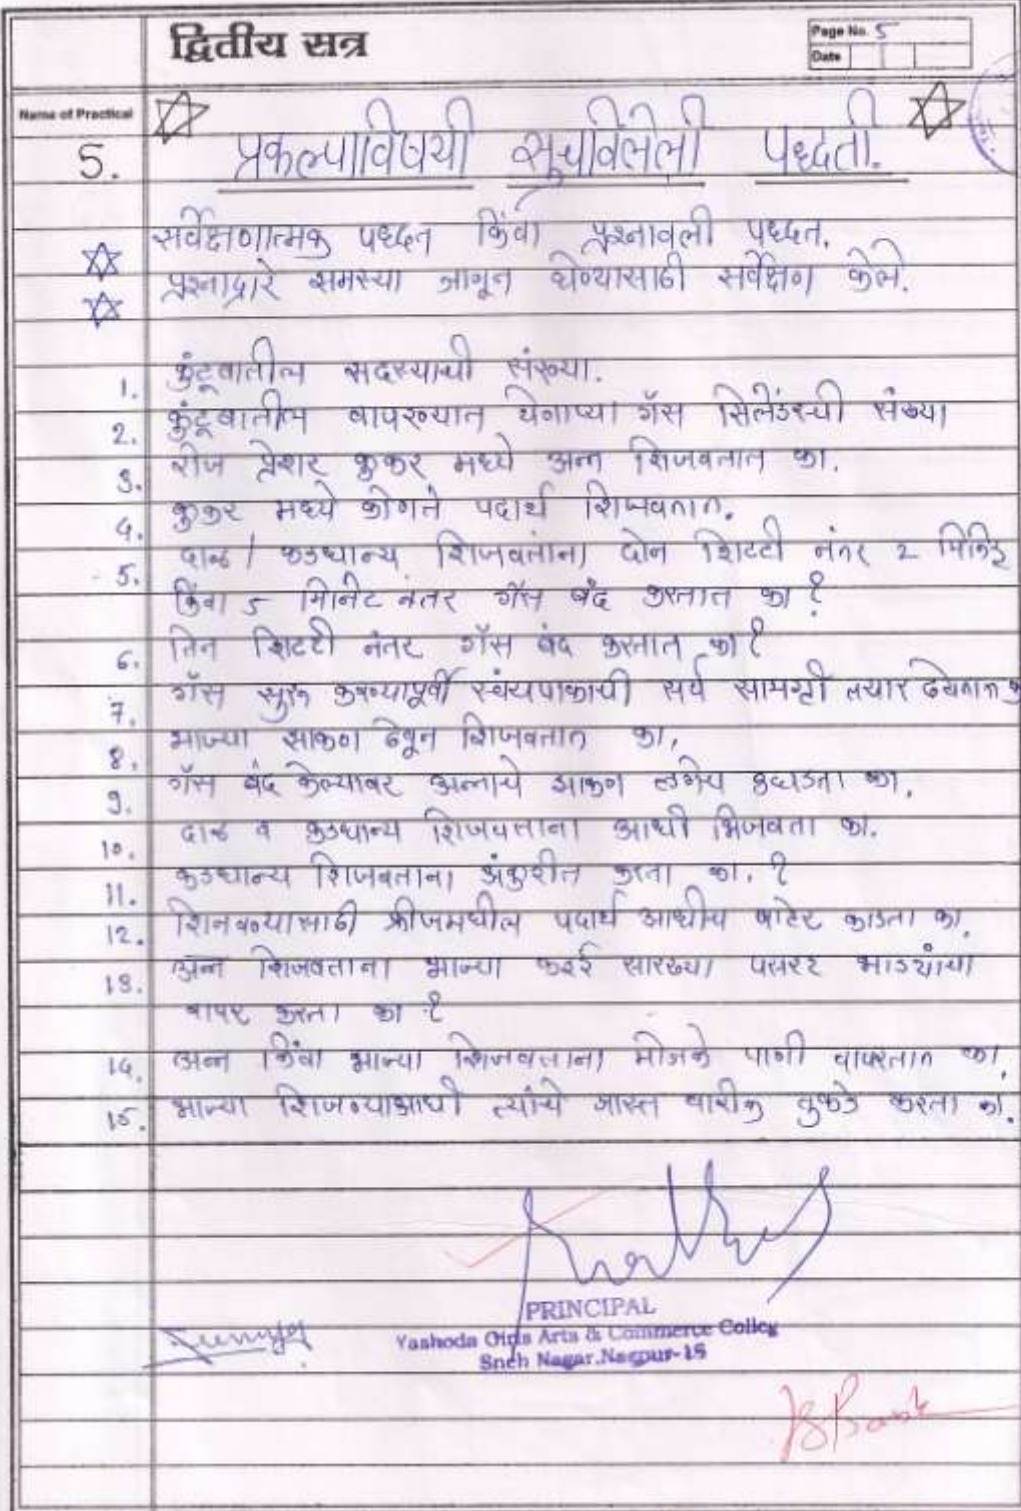 द्वितीय सत्र
Page No. 5
Date
Name of Practical
5. प्रकल्पाविषयी सुचविलेली पध्दती.
सर्वेक्षणात्मक पध्दत किंवा प्रश्नावली पध्दत.
प्रश्नाद्वारे समस्या जाणून घेण्यासाठी सर्वेक्षण केले.
1. कुंटूबातील सदस्याची संख्या.
2. कुंटूबातील वापरण्यात येणाऱ्या गॅस सिलेंडरची संख्या
3. रोज प्रेशर कुकर मध्ये अन्न शिजवतात का.
4. कुकर मध्ये कोणते पदार्थ शिजवतात.
5. दाळ / कडधान्य शिजवतांना दोन शिटटी नंतर 2 मिनिट
किंवा 5 मिनिट नंतर गॅस बंद करतात का?
6. तिन शिटटी नंतर गॅस बंद करतात का?
7. गॅस सुरू करण्यापूर्वी स्वंयपाकाची सर्व सामग्री तयार ठेवतात
8. भाज्या झाकण ठेवून शिजवतात का.
9. गॅस बंद केल्यावर अन्नाचे झाकण लगेच उघडता का.
10. दाळ व कडधान्य शिजवताना आधी भिजवता का.
11. कडधान्य शिजवताना अंकुरीत करता का. ?
12. शिजवण्यासाठी फ्रीजमधील पदार्थ आधीच बाहेर काढता का.
13. अन्न शिजवताना भाज्या कढई सारख्या पसरट भाडयांचा
वापर करता का ?
14. अन्न किंवा भाज्या शिजवताना मोजके पाणी वापरतात का.
15. भाज्या शिजण्याआधी त्यांचे जास्त बारीक तुकडे करता का.
PRINCIPAL
Yashoda Girls Arts & Commerce College
Sneh Nagar, Nagpur-15